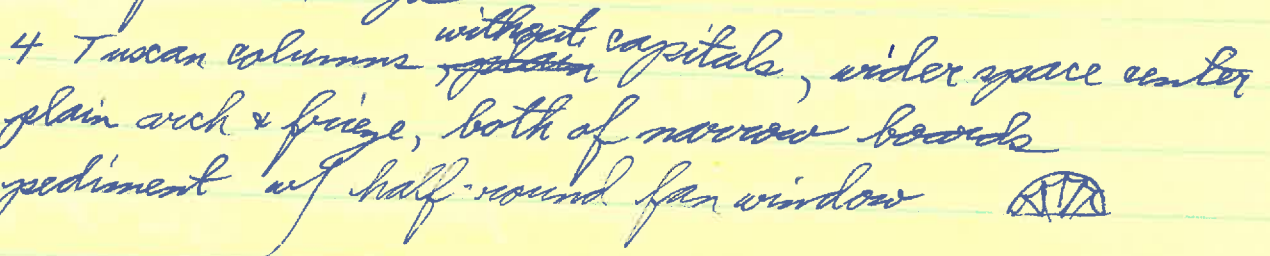 4 Tuscan columns, without capitals, wider space center
plain arch & frieze, both of narrow boards
pediment w/ half-round fan window